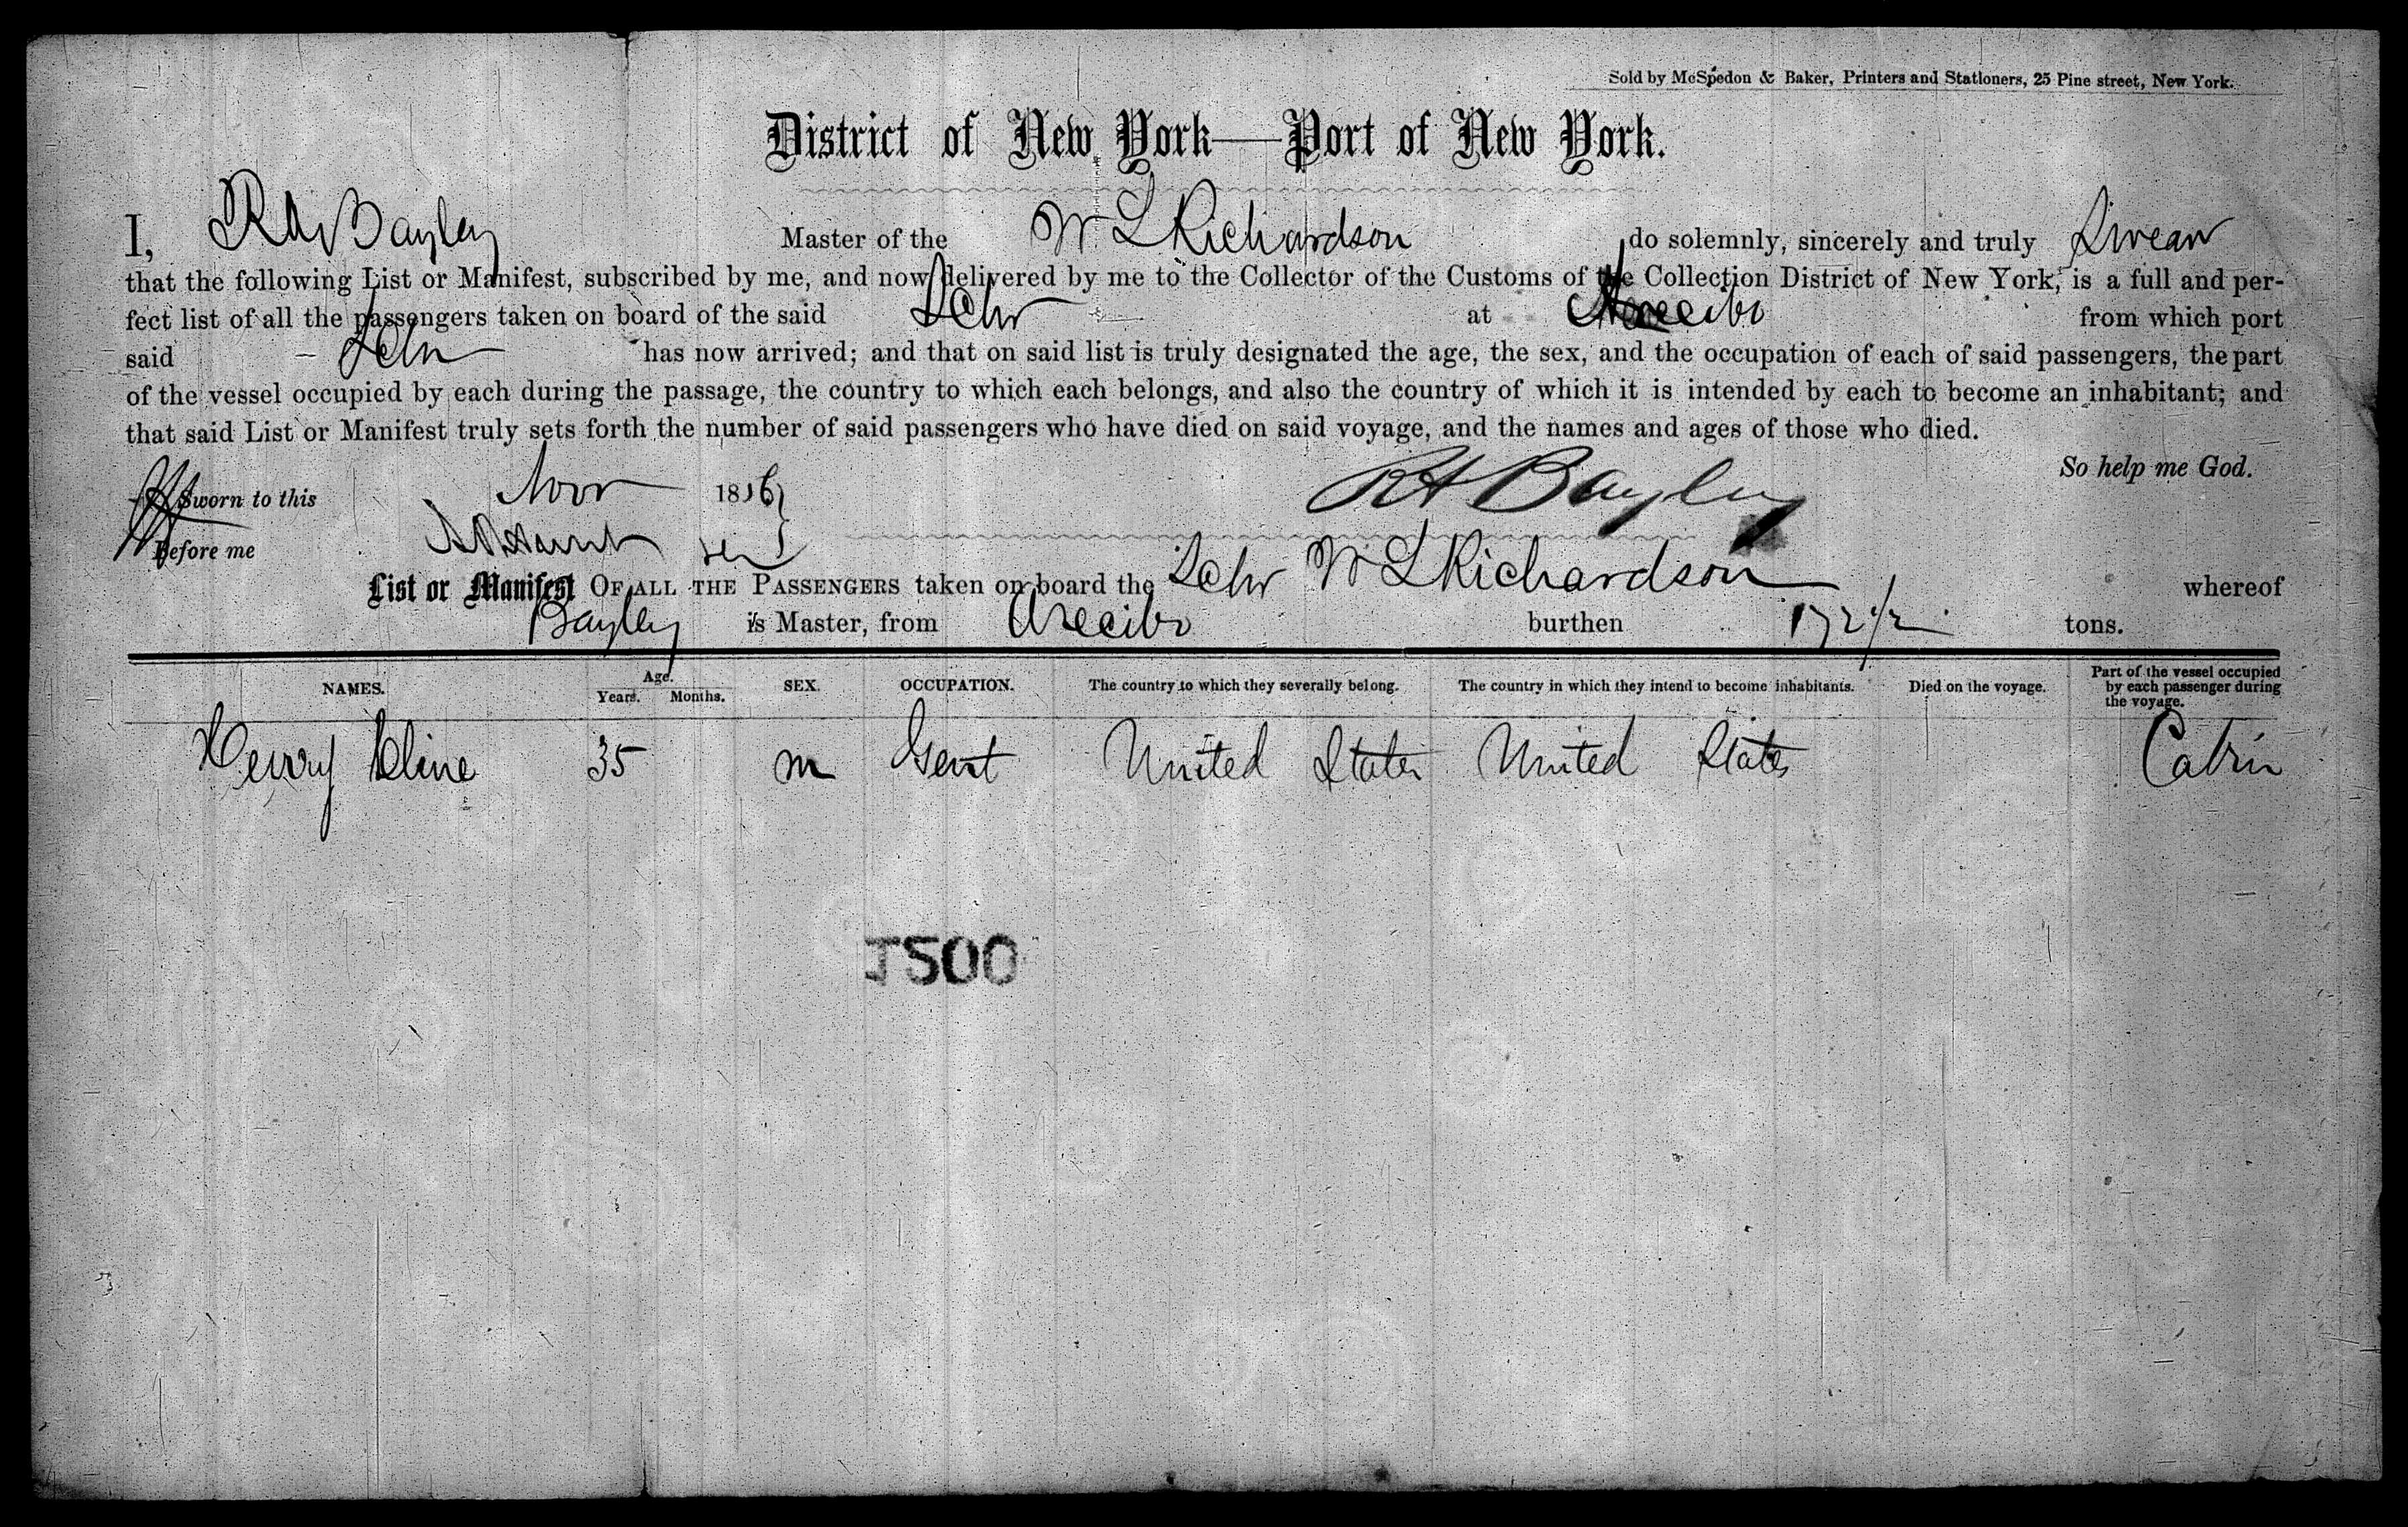 Sold by McSpedon & Baker, Printers and Stationers, 25 Pine street, New York.
District of New York—Port of New York.
I, R H Bayley Master of the W L Richardson do solemnly, sincerely and truly Swear
that the following List or Manifest, subscribed by me, and now delivered by me to the Collector of the Customs of the Collection District of New York, is a full and per-
fect list of all the passengers taken on board of the said Schr at Arecibo from which port
said Schr has now arrived; and that on said list is truly designated the age, the sex, and the occupation of each of said passengers, the part
of the vessel occupied by each during the passage, the country to which each belongs, and also the country of which it is intended by each to become an inhabitant; and
that said List or Manifest truly sets forth the number of said passengers who have died on said voyage, and the names and ages of those who died.
So help me God.
Sworn to this Novr 1856 R H Bayley
Before me
List or Manifest OF ALL THE PASSENGERS taken on board the Schr W L Richardson whereof
Bayley is Master, from Arecibo burthen 172 1/2 tons.
NAMES. Age. Years. Months. SEX. OCCUPATION. The country to which they severally belong. The country in which they intend to become inhabitants. Died on the voyage. Part of the vessel occupied by each passenger during the voyage.
Henry Cline 35 m Gent United States United States Cabin
1500